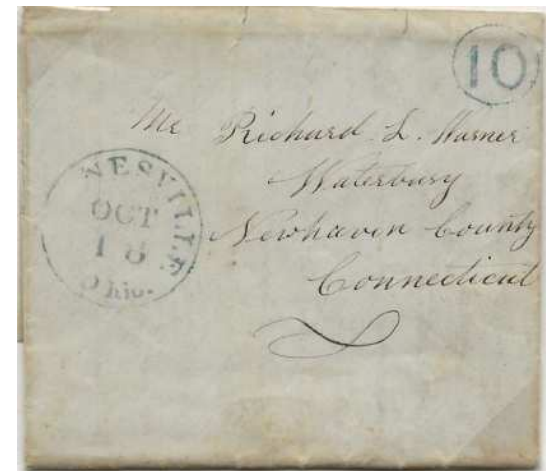 10
Mr Richard L. Warner
Waterbury
Newhaven County
Connecticut
NESVILLE
OCT
18
Ohio.